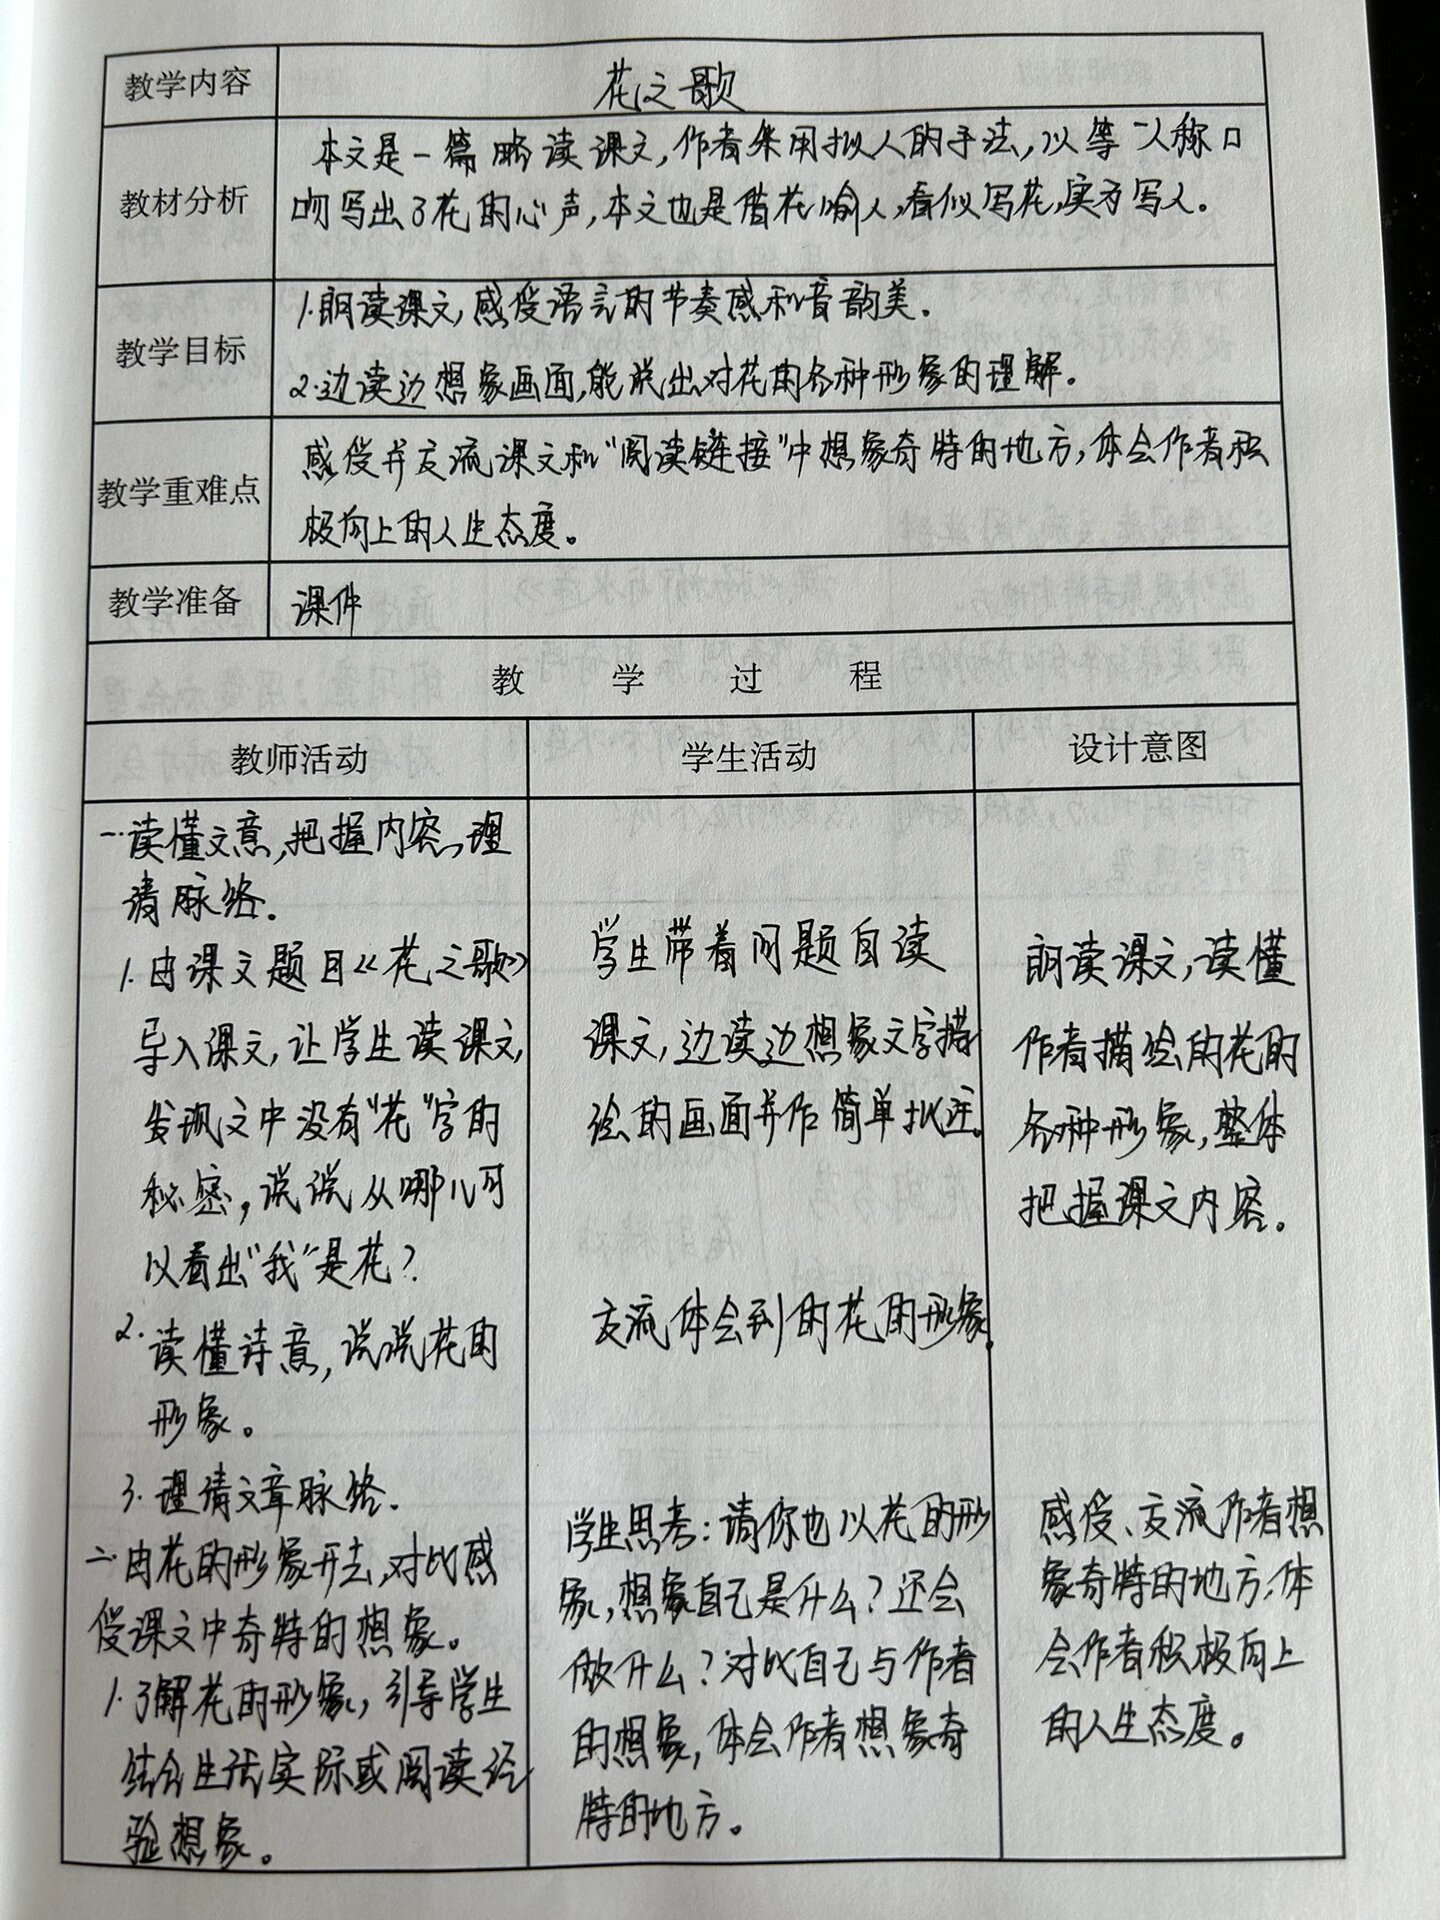 教学内容 花之歌
教材分析
本文是一篇略读课文,作者采用拟人的手法,以第一人称口
吻写出了花的心声,本文也是借花喻人,看似写花,实为写人。
教学目标
1.朗读课文,感受语言的节奏感和音韵美。
2.边读边想象画面,能说出对花的各种形象的理解。
教学重难点
感受并交流课文和“阅读链接”中想象奇特的地方,体会作者积
极向上的人生态度。
教学准备 课件
教学过程
教师活动 学生活动 设计意图
一.读懂文意,把握内容,理
清脉络.
1.由课文题目《花之歌》
导入课文,让学生读课文,
发现文中没有“花”字的
秘密,说说从哪儿可
以看出“我”是花?
2.读懂诗意,说说花的
形象。
3.理清文章脉络.
二.由花的形象开去,对比感
受课文中奇特的想象。
1.了解花的形象,引导学生
结合生活实际或阅读经
验想象。
学生带着问题自读
课文,边读边想象文字描
绘的画面并作简单批注。
交流体会到的花的形象。
学生思考:请你也以花的形
象,想象自己是什么?还会
做什么?对比自己与作者
的想象,体会作者想象奇
特的地方。
朗读课文,读懂
作者描绘的花的
各种形象,整体
把握课文内容。
感受、交流作者想
象奇特的地方,体
会作者积极向上
的人生态度。